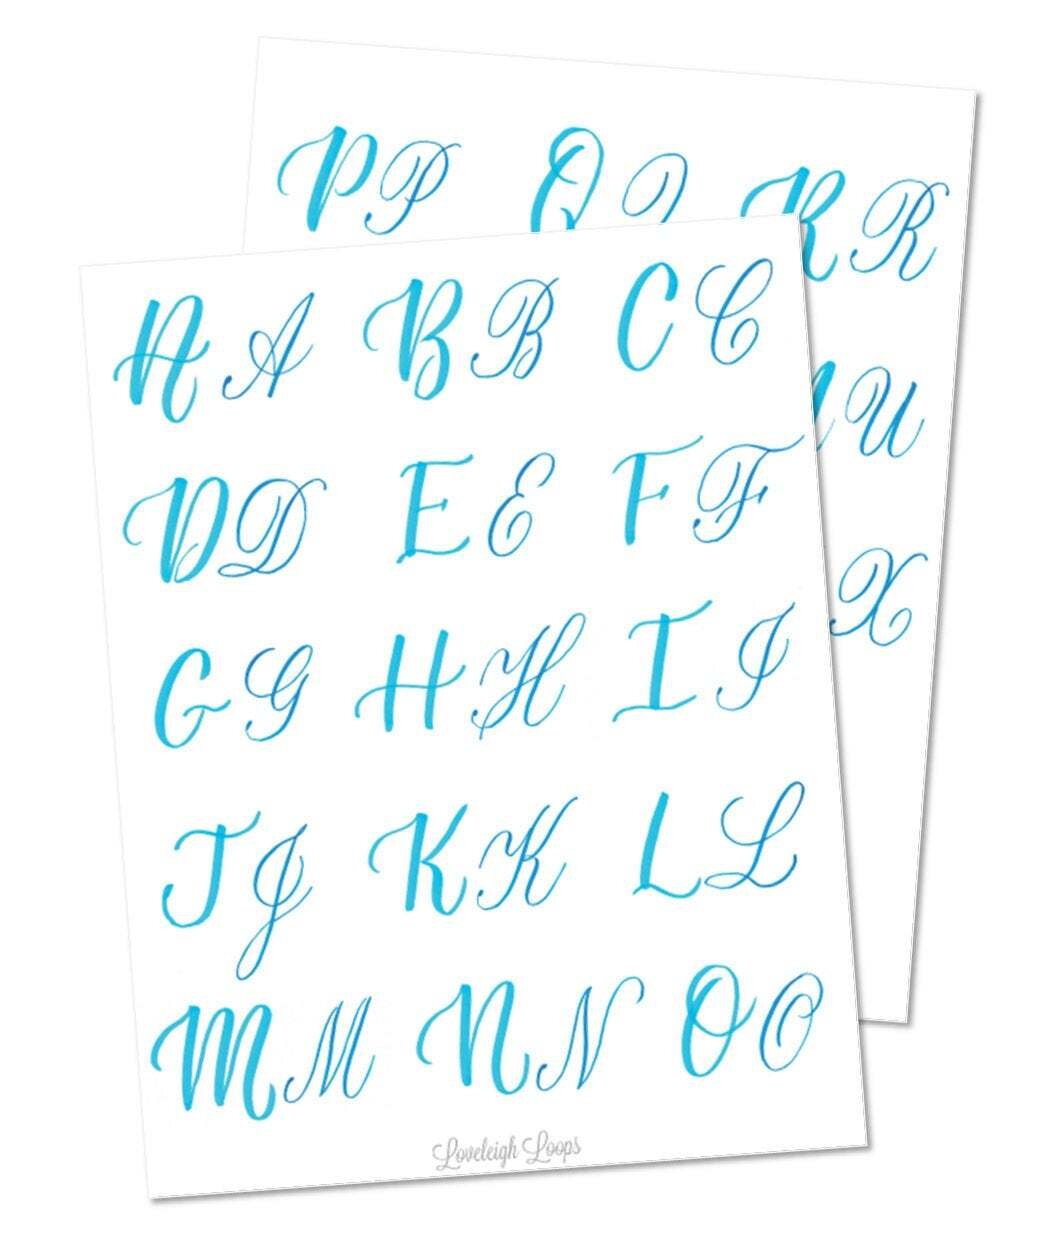 P P Q Q R R
U U
X
A A B B C C
D D E E F F
G G H H I I
J J K K L L
M M N N O O
Loveleigh Loops